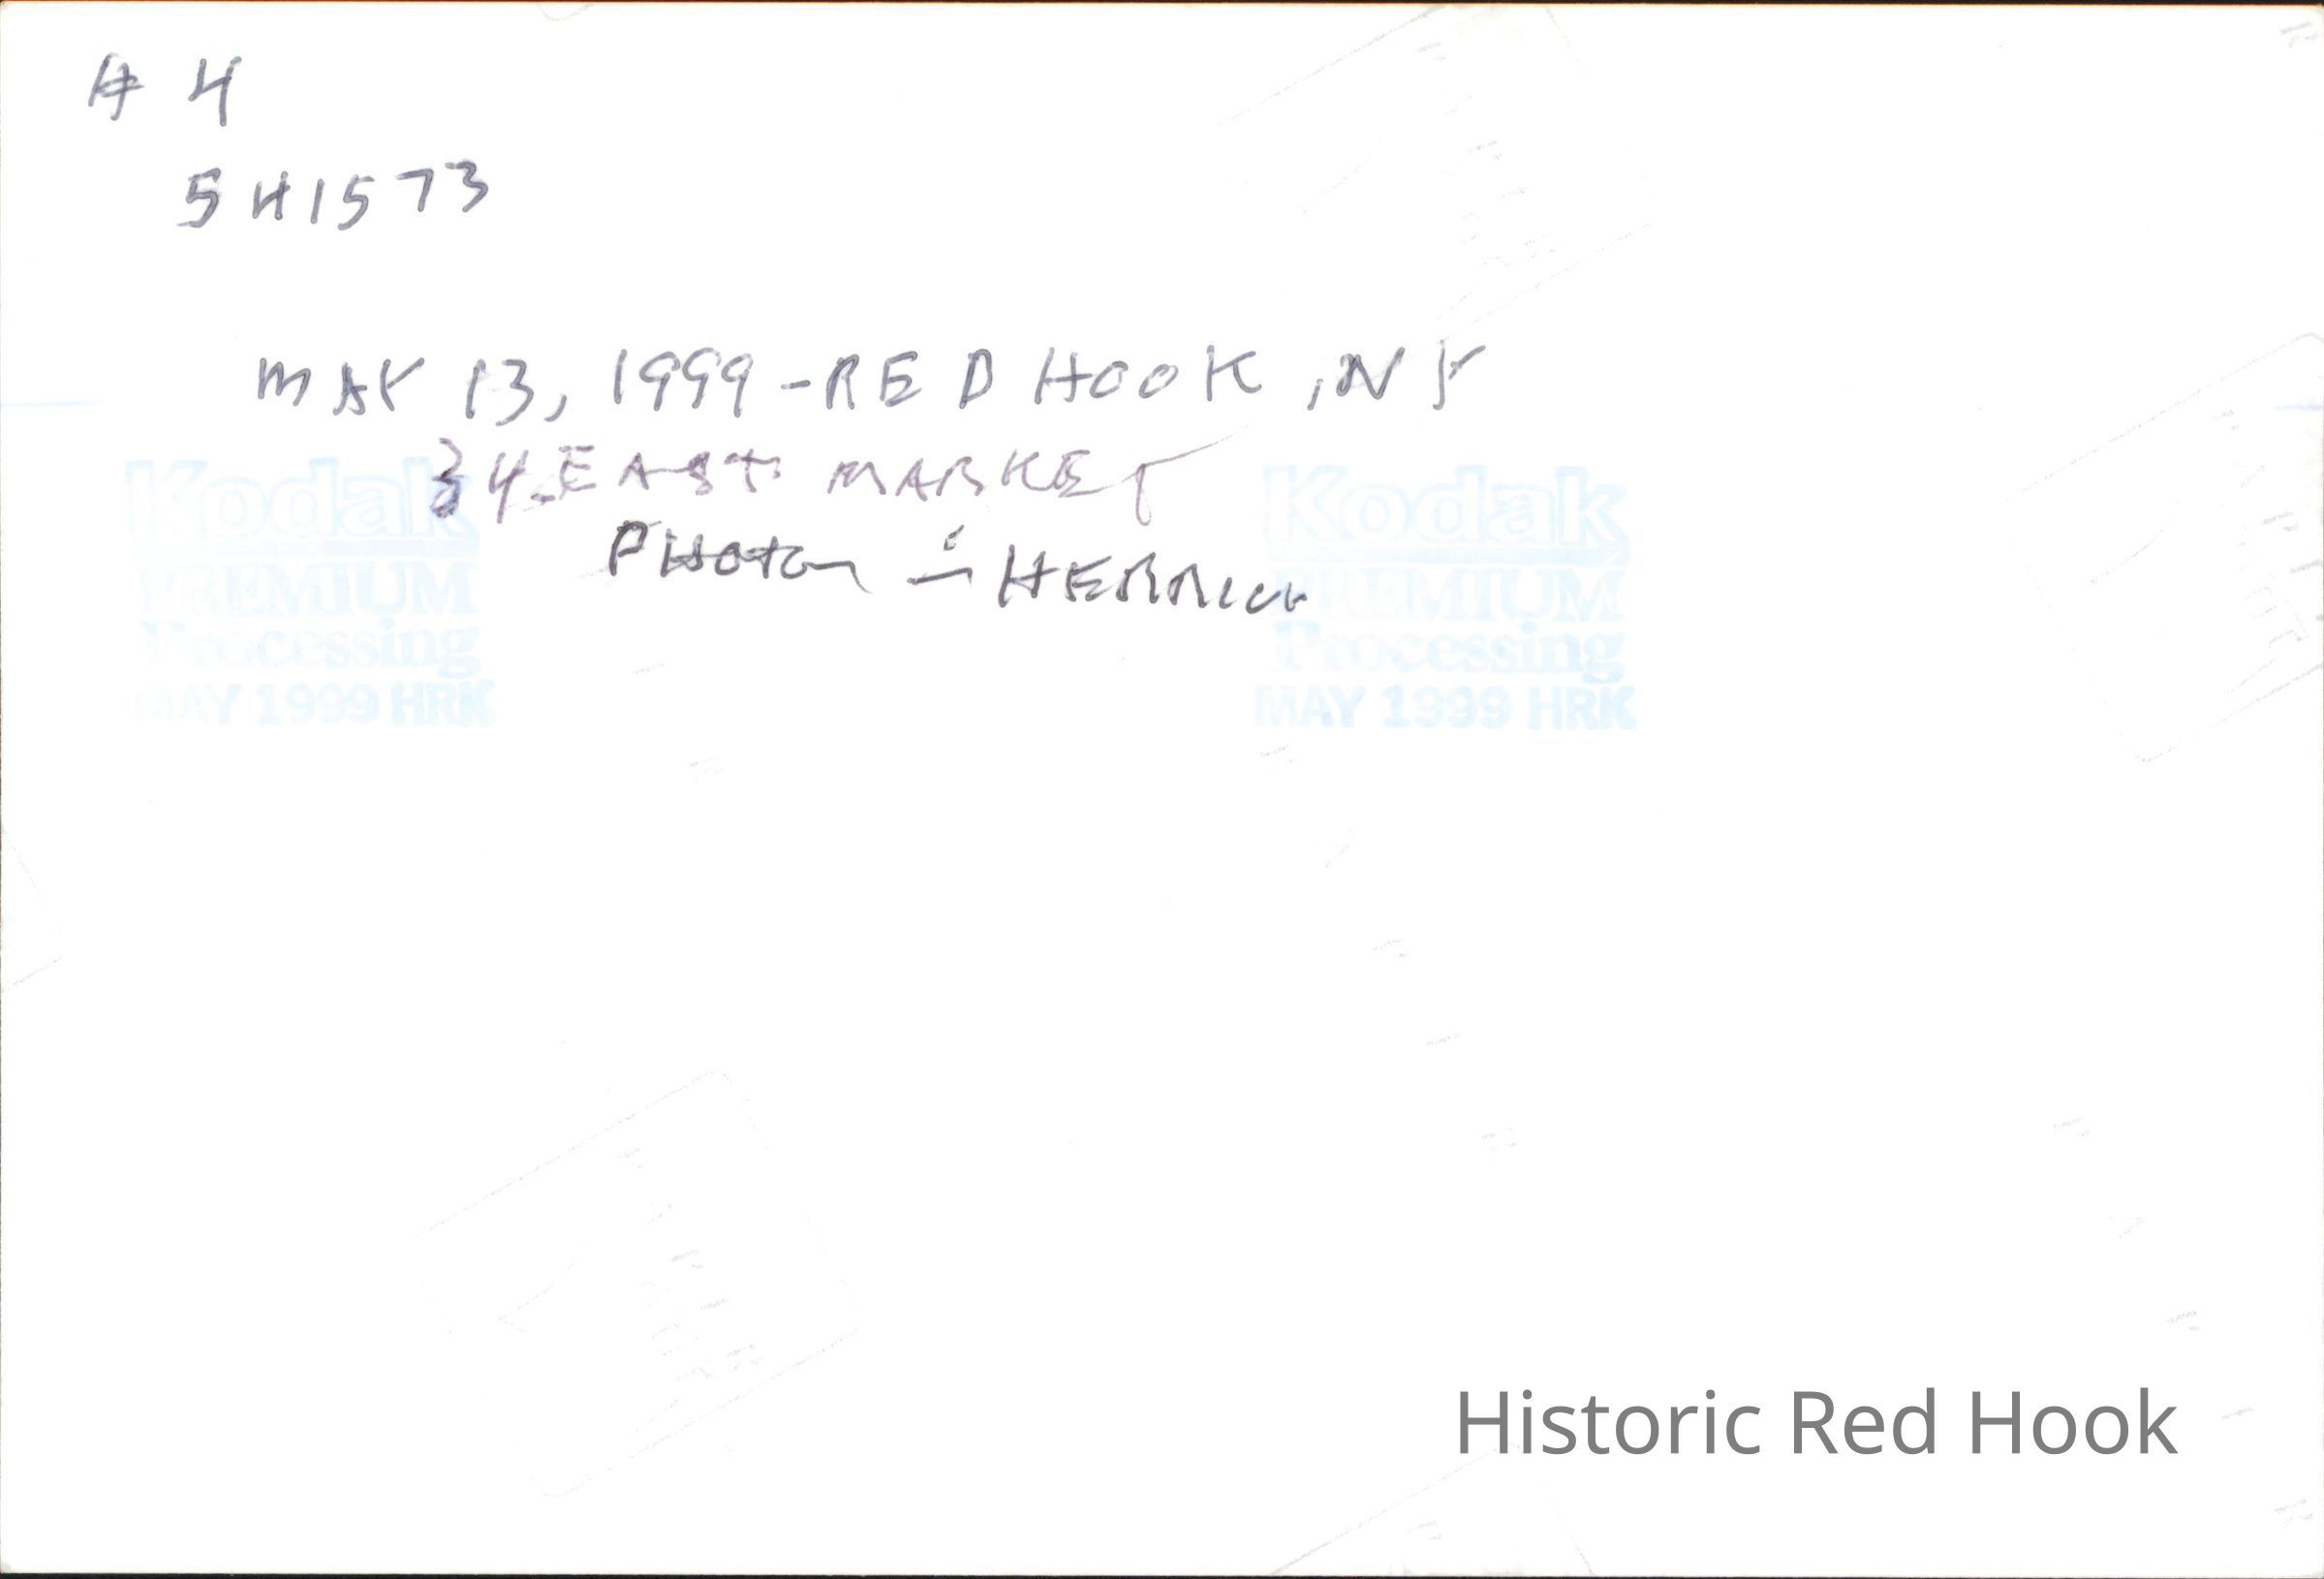 # 4
541573
MAY 13, 1999 - RED HOOK, NY
34 EAST MARKET
PHOTO - HERRICK
Kodak
PREMIUM
Processing
MAY 1999 HRK
Kodak
PREMIUM
Processing
MAY 1999 HRK
Historic Red Hook